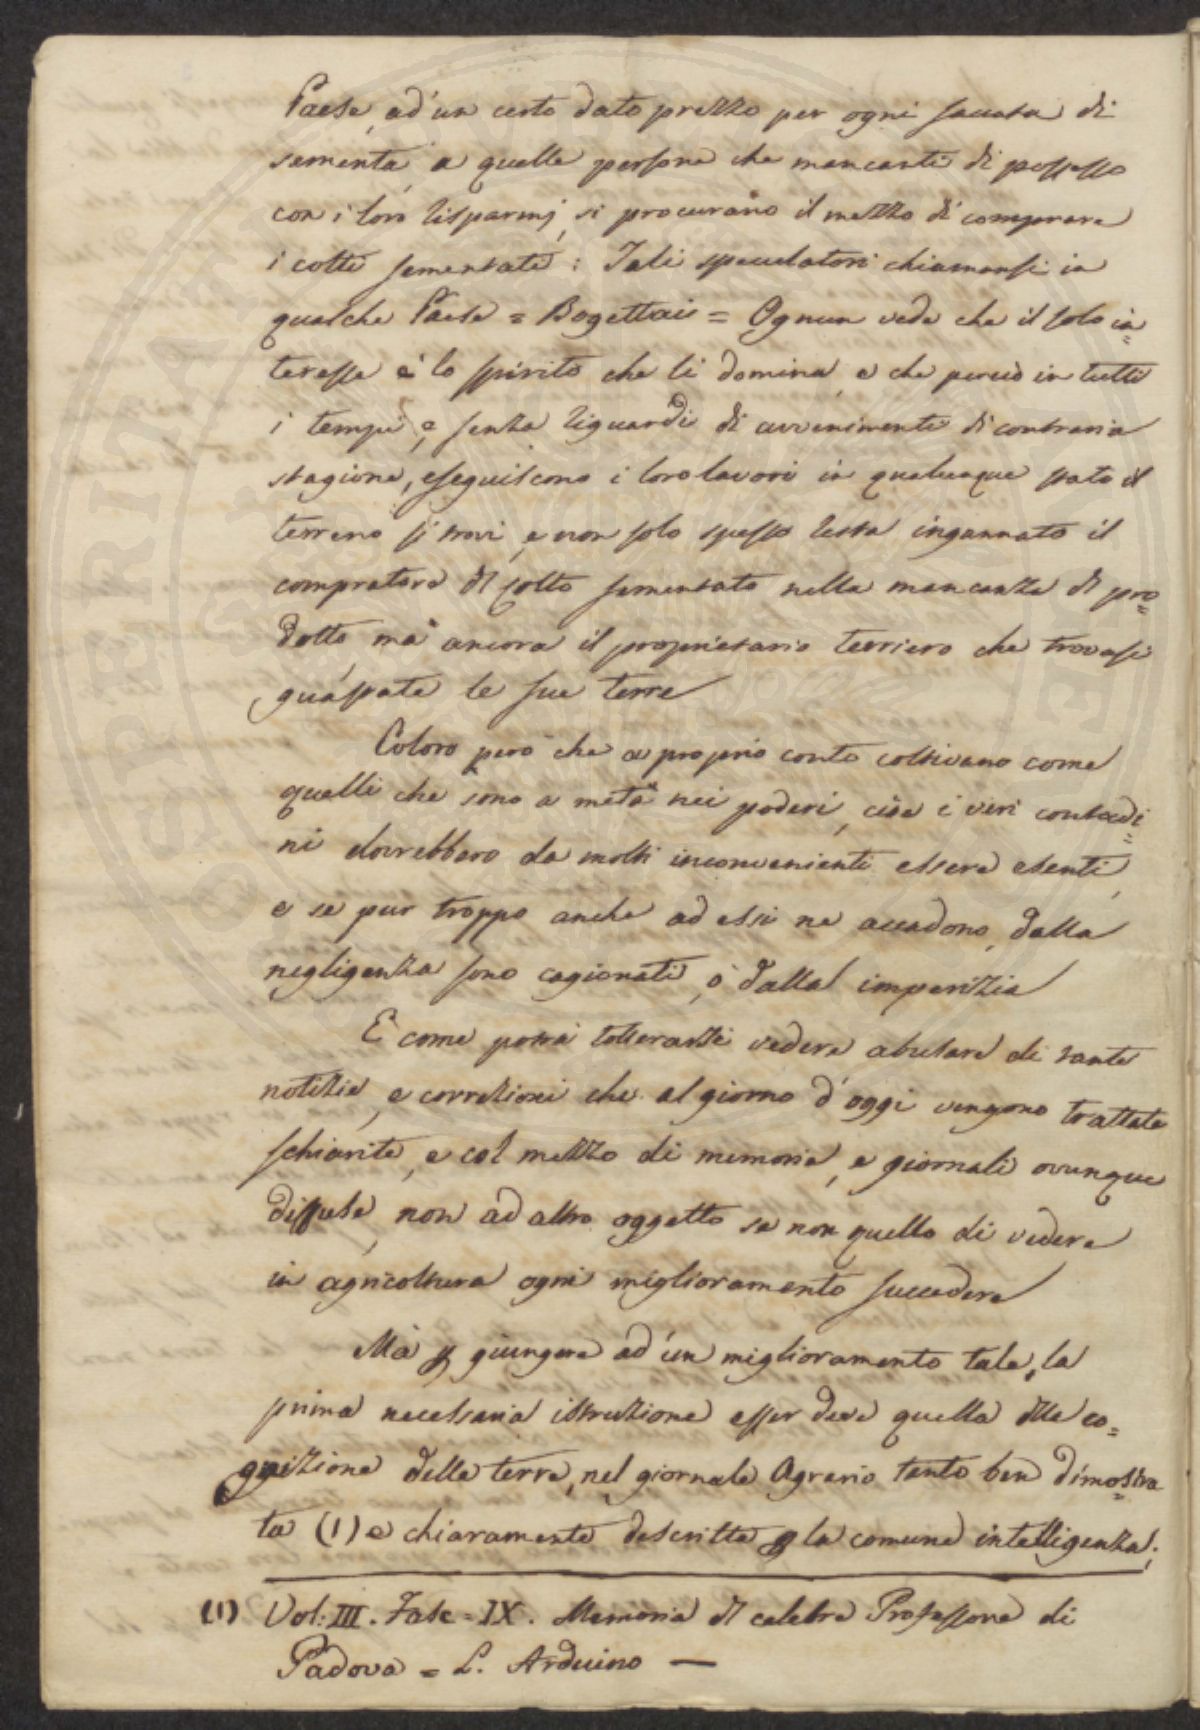 Paese, ad un certo dato prezzo per ogni saccata di
sementa, a quelle persone che mancanti di possesso
con i loro risparmj, si procurano il mezzo di comprare
i colti sementati: Tali speculatori chiamansi in
qualche Paese = Bogettaii = Ognun vede che il solo in=
teresse è lo spirito che li domina, e che perciò in tutti
i tempi, e senza riguardi di avvenimenti di contraria
stagione, eseguiscono i loro lavori in qualunque stato il
terreno si trovi, e non solo spesso resta ingannato il
compratore di colto sementato nella mancanza di pro=
dotto mà ancora il proprietario terriero che trovasi
guastate le sue terre
Coloro però che a proprio conto coltivano come
quelli che sono a metà nei poderi, cioè i veri contadi=
ni dovrebbero da molti inconvenienti essere esenti,
e se pur troppo anche ad essi ne accadono, dalla
negligenza sono cagionati, ò dalla imperizia
E come potrà tollerarsi vedere abusare di tante
notizie, e correzioni che al giorno d'oggi vengono trattate
schiarite, e col mezzo di memorie, e giornali ovunque
diffuse, non ad altro oggetto se non quello di vedere
in agricoltura ogni miglioramento succedere
Mà p giungere ad un miglioramento tale, la
prima necessaria istruzione esser deve quella dlle co=
gnizione delle terre, nel giornale Agrario tanto ben dimostra=
ta (1) e chiaramente descritte p la comune intelligenza;
(1) Vol: III. Fasc = IX. Memoria dl celebre Professore di
Padova = L. Arduino —